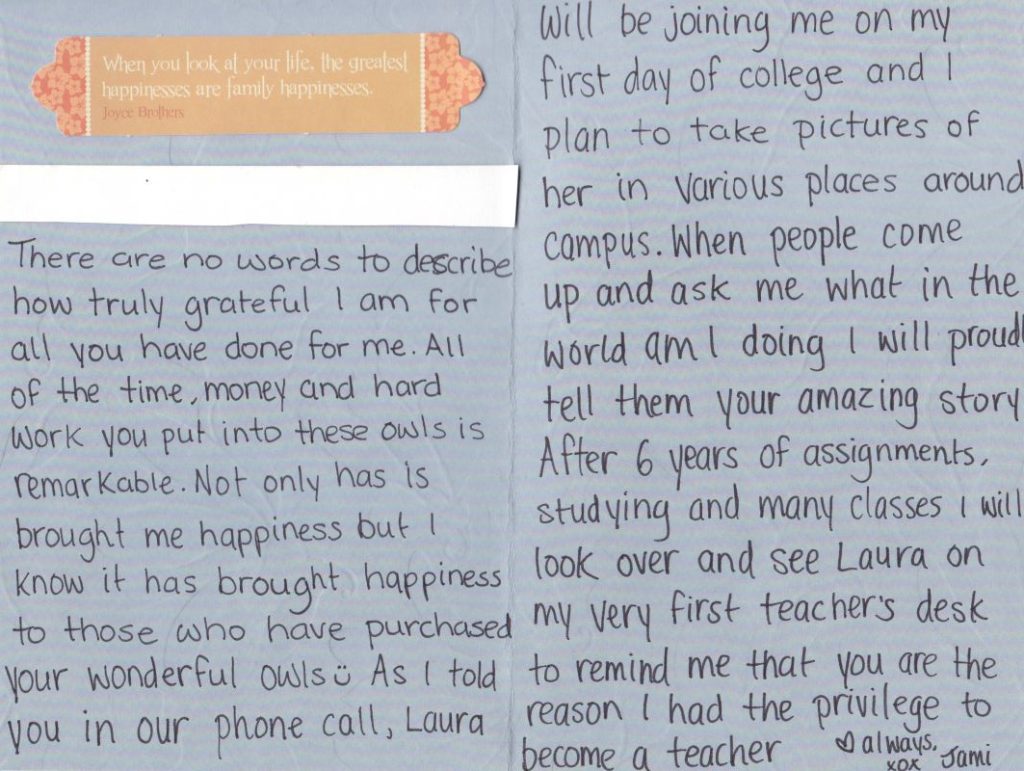 When you look at your life, the greatest
happinesses are family happinesses.
Joyce Brothers
There are no words to describe
how truly grateful I am for
all you have done for me. All
of the time, money and hard
work you put into these owls is
remarkable. Not only has is
brought me happiness but I
know it has brought happiness
to those who have purchased
your wonderful owls Ü As I told
you in our phone call, Laura
will be joining me on my
first day of college and I
plan to take pictures of
her in various places around
campus. When people come
up and ask me what in the
world am I doing I will proudl
tell them your amazing story
After 6 years of assignments,
studying and many classes I will
look over and see Laura on
my very first teacher's desk
to remind me that you are the
reason I had the privilege to
become a teacher ♡ always,
xox Jami